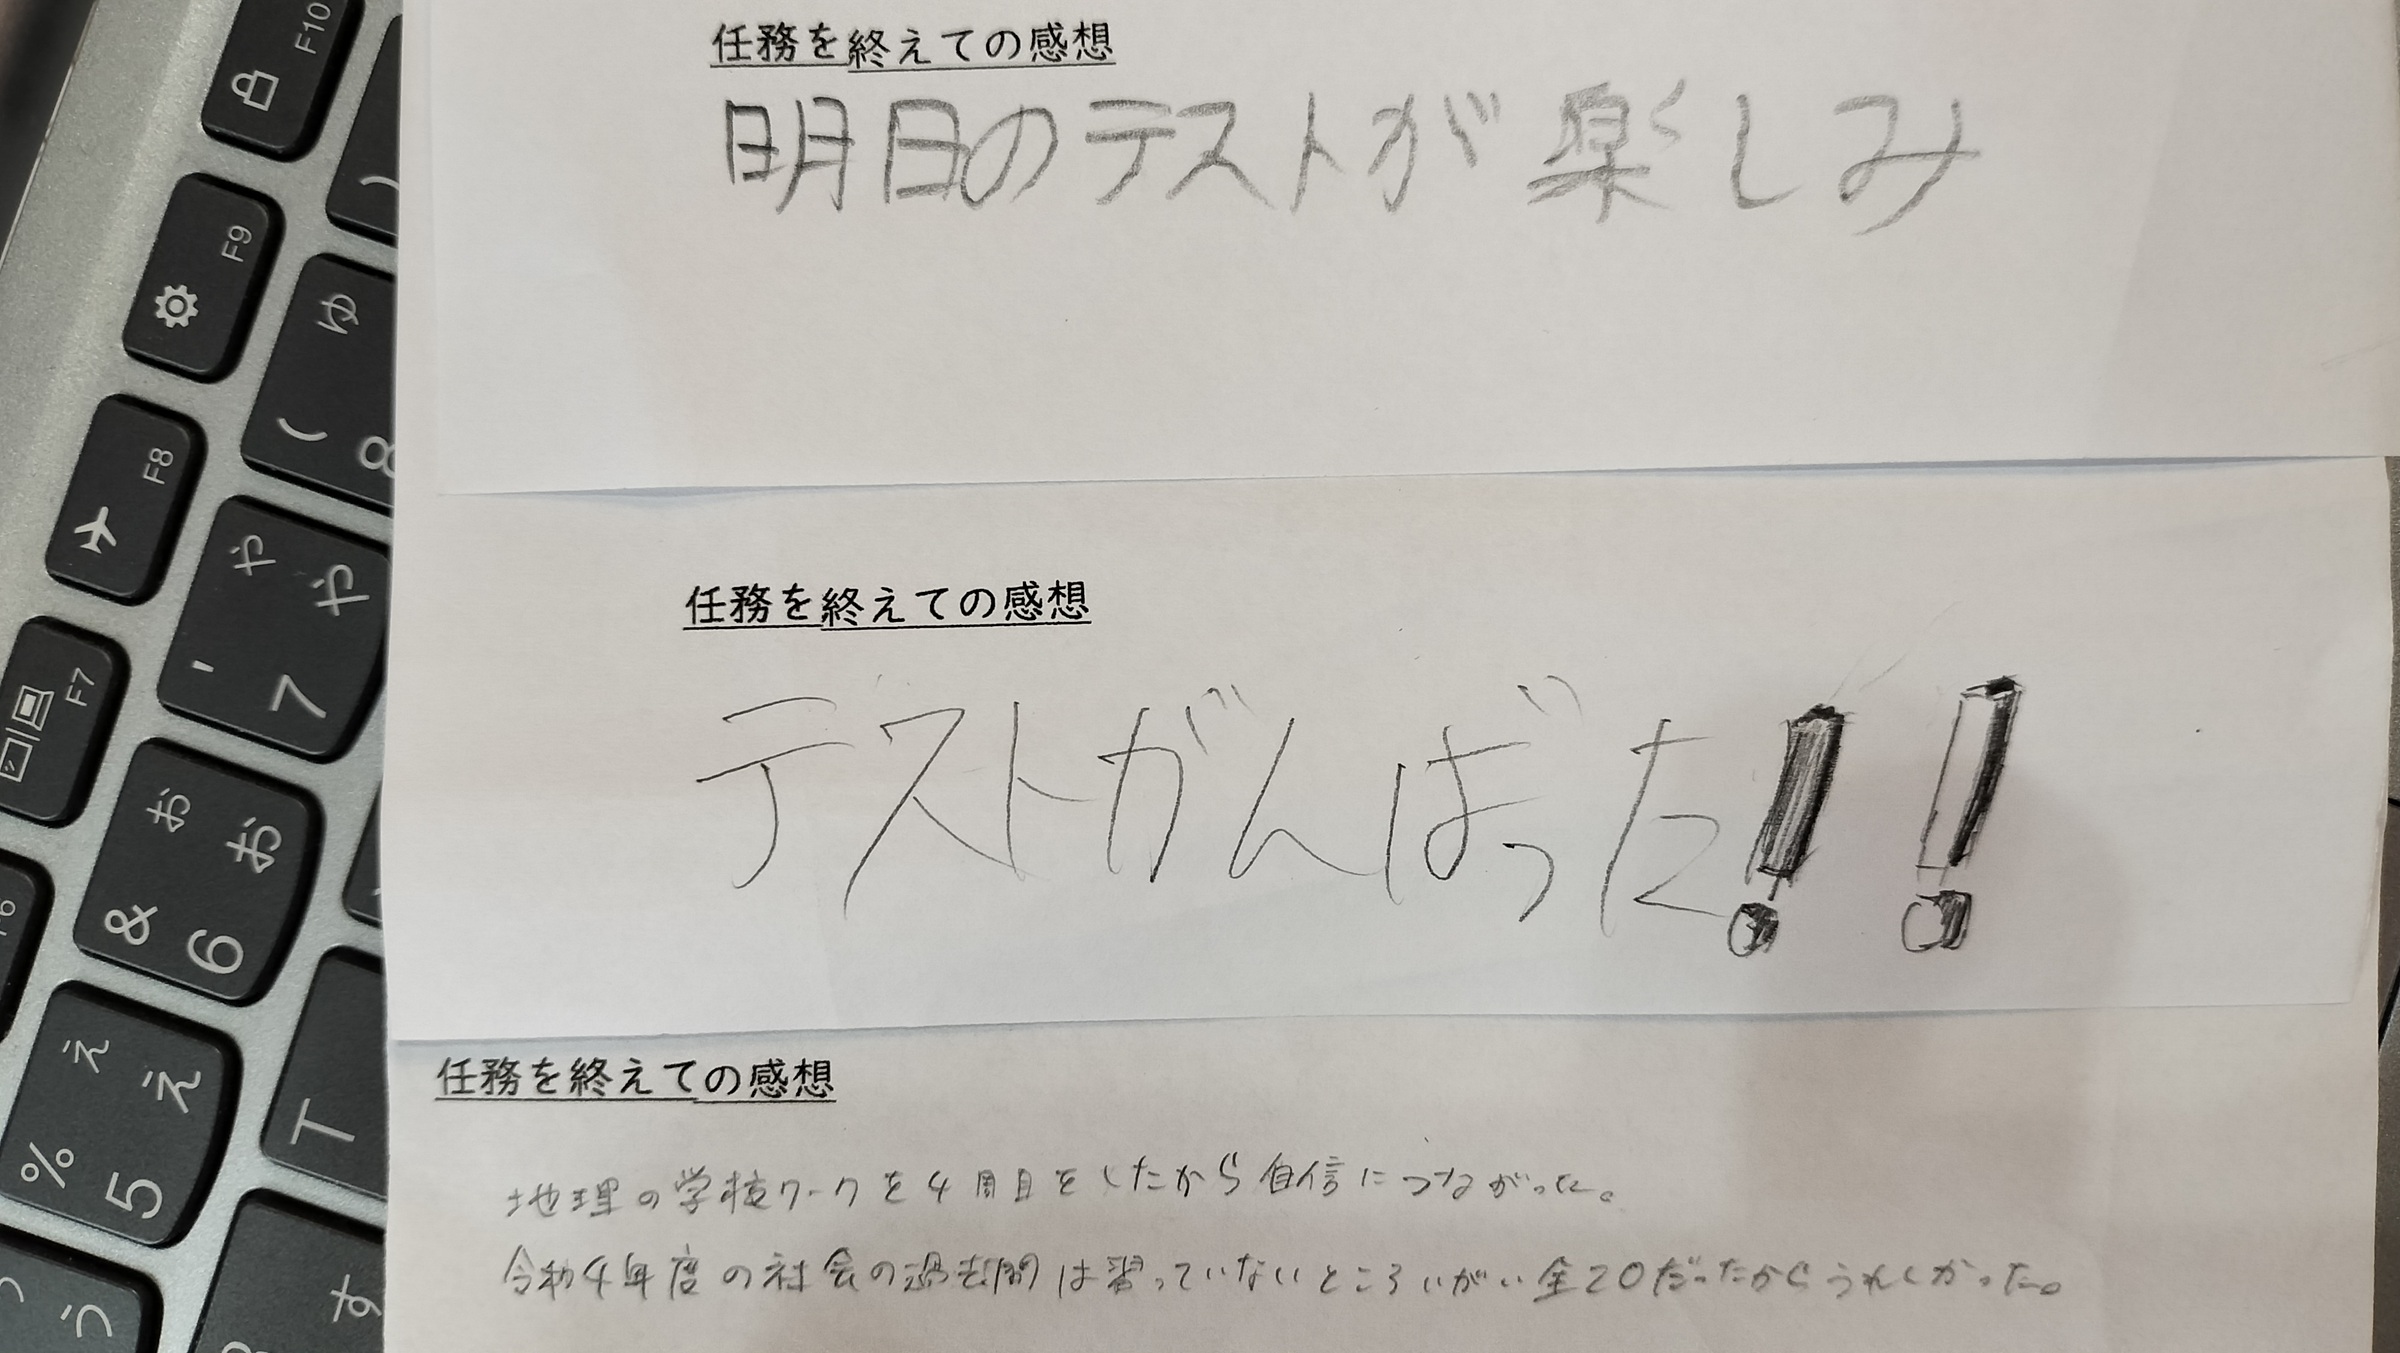 任務を終えての感想
明日のテストが楽しみ
任務を終えての感想
テストがんばった!!
任務を終えての感想
地理の学校ワークを4周目をしたから自信につながった。
令和4年度の社会の過去問は習っていないところいがい全20だったからうれしかった。
F10
F9
ゆ
( 8
F8
や
や
' 7
F7
お
お
& 6
F6
え
え
% 5
T
う
す